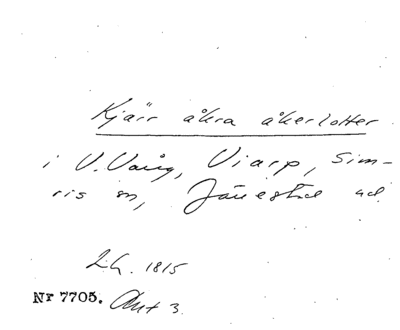 Kjärr åkra åkerlotter
i V. Vång, Viarp, Sim-
ris sn, Järrestad hd
L.h. 1815
Nr 7705. Akt 3.